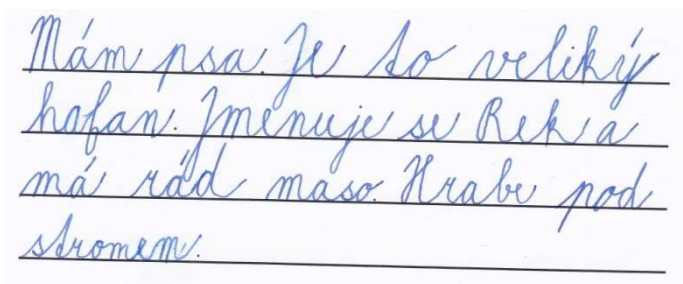 Mám psa. Je to veliký
hafan. Jmenuje se Rek a
má rád maso. Hrabe pod
stromem.